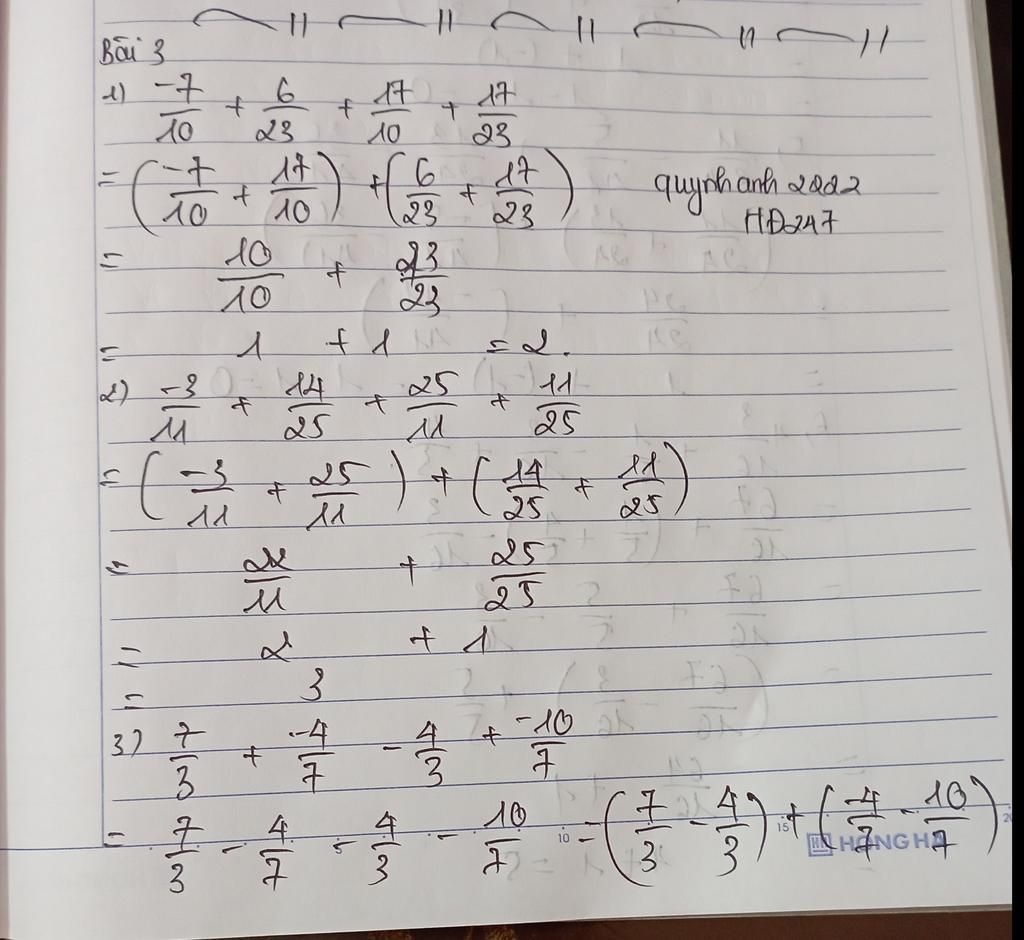 Bài 3
1) -7/10 + 6/23 + 17/10 + 17/23
= (-7/10 + 17/10) + (6/23 + 17/23)
quynh anh 2222
HĐ247
= 10/10 + 23/23
= 1 + 1 = 2.
2) -3/11 + 14/25 + 25/11 + 11/25
= (-3/11 + 25/11) + (14/25 + 11/25)
= 22/11 + 25/25
= 2 + 1
= 3
3) 7/3 + -4/7 - 4/3 + -10/7
= 7/3 - 4/7 - 4/3 - 10/7 = (7/3 - 4/3) + (-4/7 - 10/7)
5 10 15 20
HONG HA